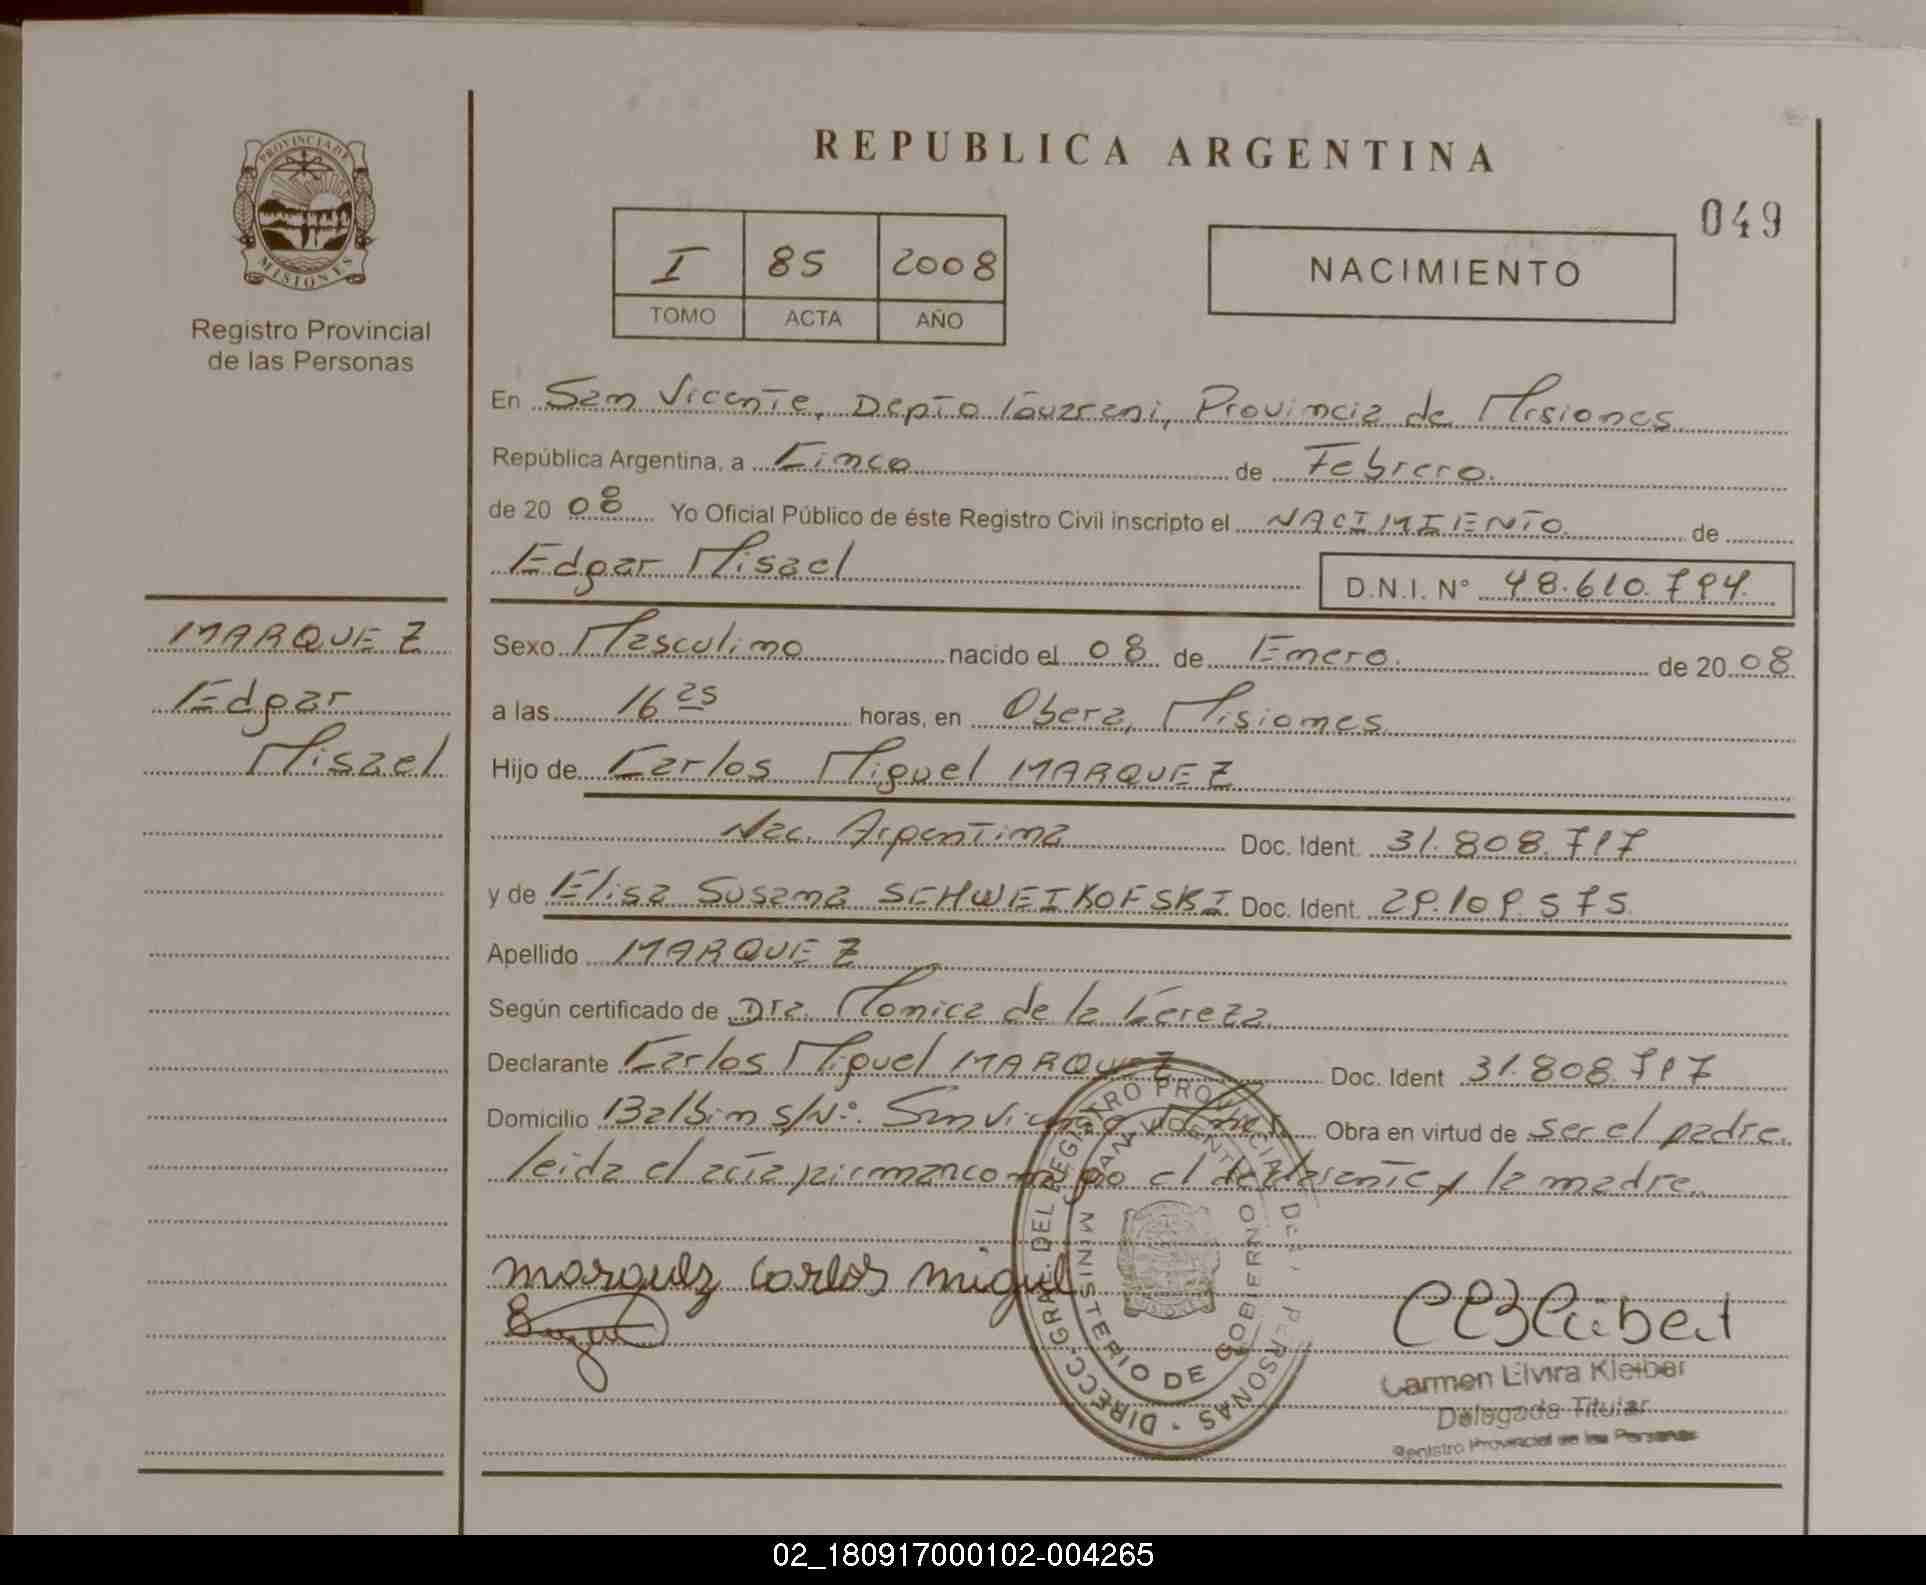 REPUBLICA ARGENTINA
049
PROVINCIA DE
MISIONES
Registro Provincial
de las Personas
I 85 2008
TOMO ACTA AÑO
NACIMIENTO
En San Vicente, Depto Guarani, Provincia de Misiones
República Argentina, a Cinco de Febrero.
de 20 08 Yo Oficial Público de éste Registro Civil inscripto el NACIMIENTO de
Edgar Misael
D.N.I. N° 48.610.794.
MARQUEZ
Edgar
Misael
Sexo Masculino nacido el 08 de Enero. de 20 08
a las 16 25 horas, en Obera, Misiones.
Hijo de Carlos Miguel MARQUEZ
Nac. Argentina Doc. Ident. 31.808.717
y de Elisa Susana SCHWEIKOFSKI Doc. Ident. 29.109.575
Apellido MARQUEZ
Según certificado de Dra. Monica de la Cereza.
Declarante Carlos Miguel MARQUEZ Doc. Ident 31.808.717
Domicilio Balbin s/N°. San Vicente Mnes. Obra en virtud de ser el padre.
leida el acta, firman conmigo el declarante y la madre.
marquez carlos miguel
DIRECC. GRAL. DEL REGISTRO PROVINCIAL DE PERSONAS
MINISTERIO DE GOBIERNO
SAN VICENTE
MISIONES
Carmen Elvira Kleiber
Delegada Titular
Registro Provincial de las Personas
02_180917000102-004265